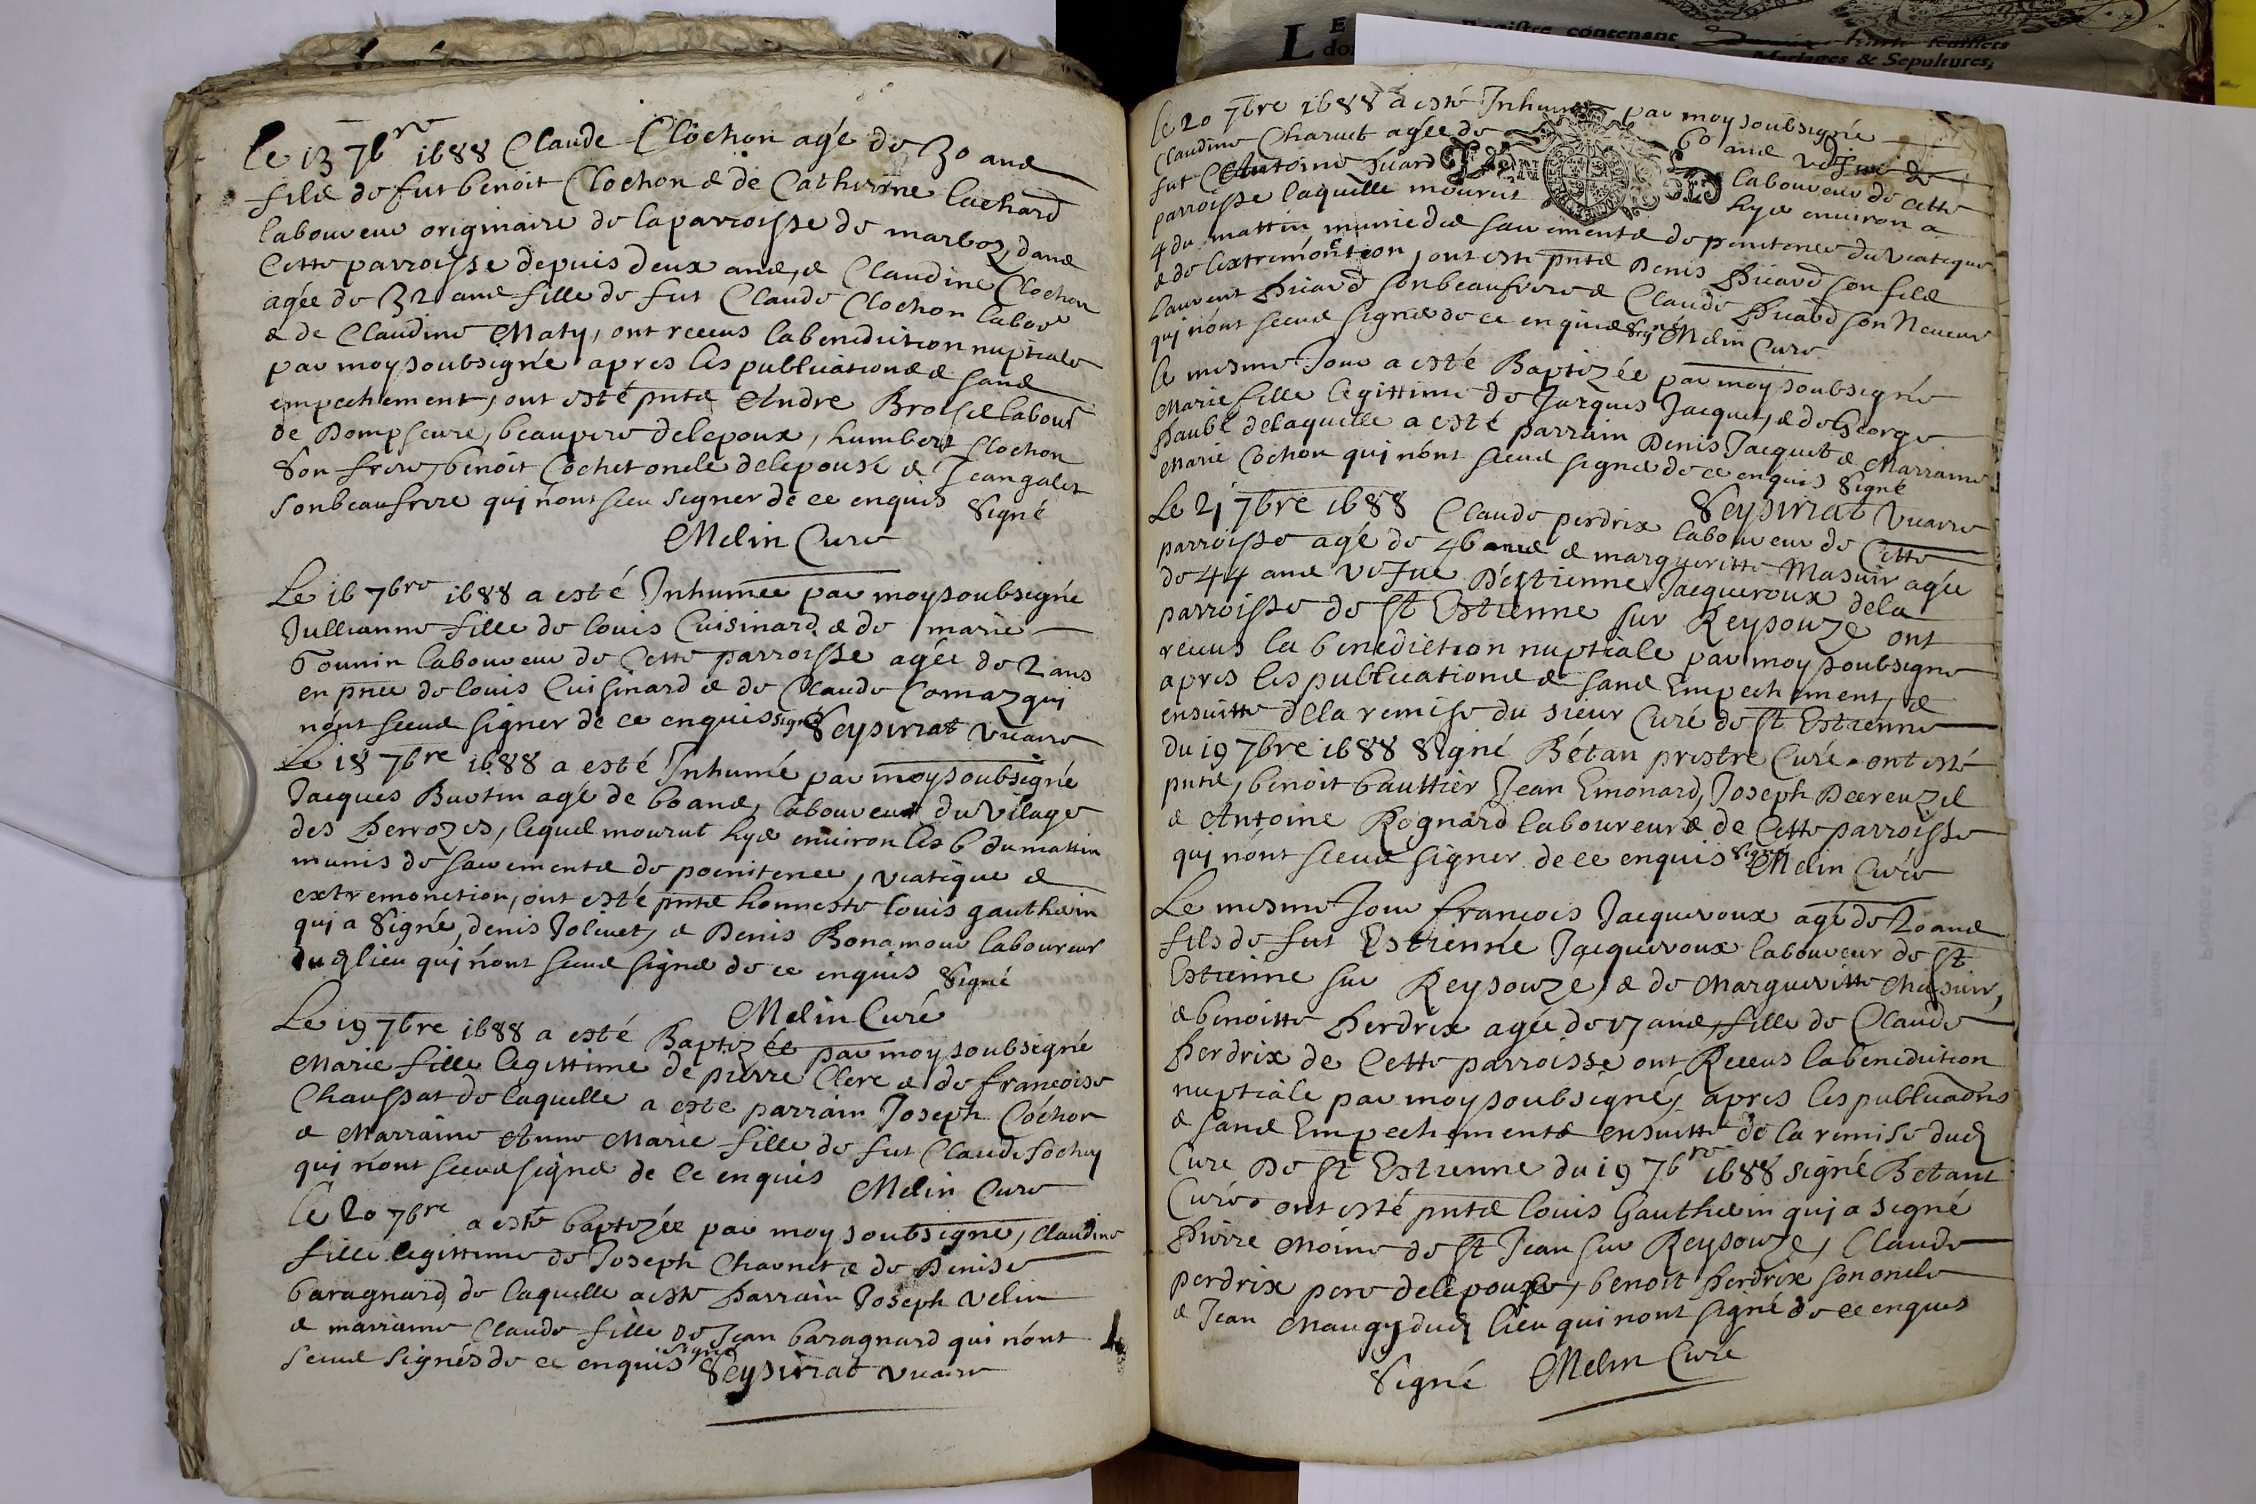 Le 13 7bre 1688 Claude Clochon agé de 30 ans
fils de fut benoit Clochon & de Catherine Cachard
laboureur originaire de la parroisse de marboz, dans
Cette parroisse depuis deux ans, & Claudine Clochon
agée de 32 ans fille de fut Claude Clochon labour
& de Claudine Maty, ont receus la benediction nuptiale
par moy soubsigné apres les publications & sans
empechement, ont esté pnts Andre Broise labour
de Dompseure, beaupere delepoux, humbert Clochon
son frere, benoit Cochet oncle delepouse & Jean galet
son beaufrere qui n'ont sceu signer de ce enquis Signé
Melin Cure
Le 16 7bre 1688 a esté Inhumée par moy soubsigné
Jullianne fille de louis Cuisinard & de marie
Gounin laboureur de Cette parroisse agée de 2 ans
en pnce de louis Cuisinard & de Claude Comaz qui
n'ont sceus signer de ce enquis signé Seysiriat vicaire
Le 18 7bre 1688 a esté Inhumé par moy soubsigné
Jacques Burtin agé de 60 ans, laboureur du vilage
des Perrozes, lequel mourut hyer environ les 6 du mattin
munis de sacements de poenitence, viatique &
extremonction, ont esté pnts honneste louis gauthein
qui a Signé, denis Jolivet, & Denis Bonamour laboureur
dud lieu qui n'ont sceus signé de ce enquis Signé
Melin Curé
Le 19 7bre 1688 a esté Baptizée par moy soubsigné
Marie fille legittime de pierre Clerc & de francoise
Chaussat de laquelle a esté parrain Joseph Cochon
& Marraine Anne Marie fille de fut Claude Sochay
qui n'ont sceus signé de Ce enquis Melin Cure
Le 20 7bre a esté baptizée par moy soubsigné, Claudine
fille legittime de Joseph Charvet & de Denise
baragnard, de laquelle a esté Parrain Joseph velin
& marraine Claude fille de Jean baragnard qui n'ont
sceus signés de ce enquis signé Seysiriat vicaire
le 20 7bre 1688 a esté Inhumée par moy soubsigné
Claudine Charvet agée de 60 ans vefve de
fut Antoine Picard laboureur de cette
parroisse laquelle mourut hyer environ a
4 du mattin munie des sacements de penitence du viatique
& de lextremontion, ont esté pnts Denis Picard son fils
Laurent Picard son beaufrere & Claude Picard son Neveur
qui n'ont sceus signés de ce enquis Signé Melin Cure
le mesme Jour a esté Baptizée par moy soubsigné
Marie fille legittime de Jacques Jacquet, & de George
Paube delaquelle a esté parrain Denis Jacquet & Marraine
Marie Cochon qui n'ont sceus signés de ce enquis Signé
Seysiriat vicaire
Le 21 7bre 1688 Claude perdrix laboureur de Cette
parroisse agé de 46 ans & margueritte Masuir agée
de 44 ans vefve D'estienne Jacqueroux dela
parroisse de St Estienne sur Reysouze ont
receus la benediction nuptiale par moy soubsigné
apres les publications & sans Empechement, &
ensuitte dela remise du sieur Curé de St Estienne
du 19 7bre 1688 Signé Bétan prestre Curé. ont esté
pnts, benoit Gauttier Jean Emonard, Joseph Decreuzel
& Antoine Rognard laboureurs de Cette parroisse
qui n'ont sceus signer de ce enquis Signé Melin Curé
Le mesme Jour francois Jacqueroux agé de 20 ans
fils de fut Estienne Jacqueroux laboureur de St
Estienne sur Reysouze, & de Margueritte Masuir,
& benoitte Perdrix agée de 17 ans, fille de Claude
Perdrix de Cette parroisse ont Receus la benediction
nuptiale par moy soubsigné, apres les publicaons
& sans Empechements ensuitte de la remise dud
Cure De St Estienne du 19 7bre 1688 signé Betant
Curé. ont esté pnts louis Gauthein qui a signé
Pierre Moine de St Jean sur Reysouze, Claude
perdrix pere delepouse, benoit Perdrix son oncle
& Jean Maugy dud lieu qui n'ont signé de ce enquis
Signé Melin Curé